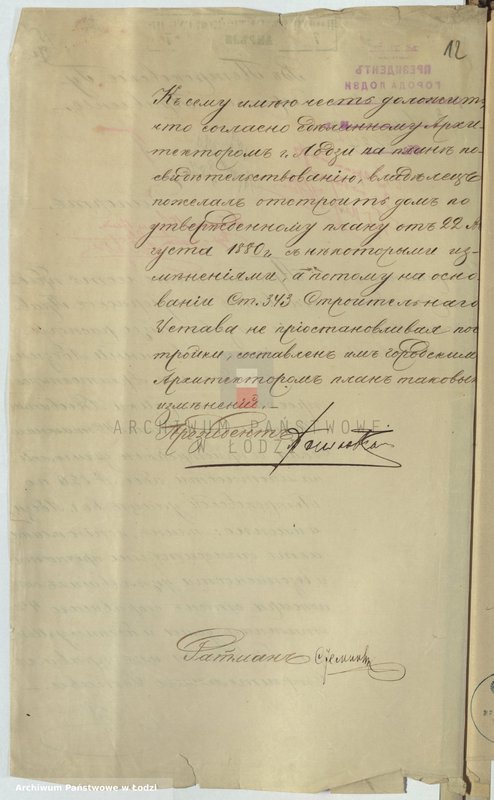 12
Къ сему имѣю честь доложить,
что согласно сдѣланному Архи-
текторомъ г. Лодзи на планѣ по-
свидѣтельствованію, владѣлецъ
пожелалъ отстроить домъ по
утвержденному плану отъ 22 Ав
густа 1880 г. съ нѣкоторыми из-
мѣненіями, а потому на осно-
ваніи Ст. 343 Строительнаго
Устава не пріостановливая пос
тройки, составленъ имъ городскимъ
Архитекторомъ планъ таковыхъ
измѣненій.-
ARCHIWUM PAŃSTWOWE
W ŁODZI
Президентъ
Ратманъ
Archiwum Państwowe w Łodzi